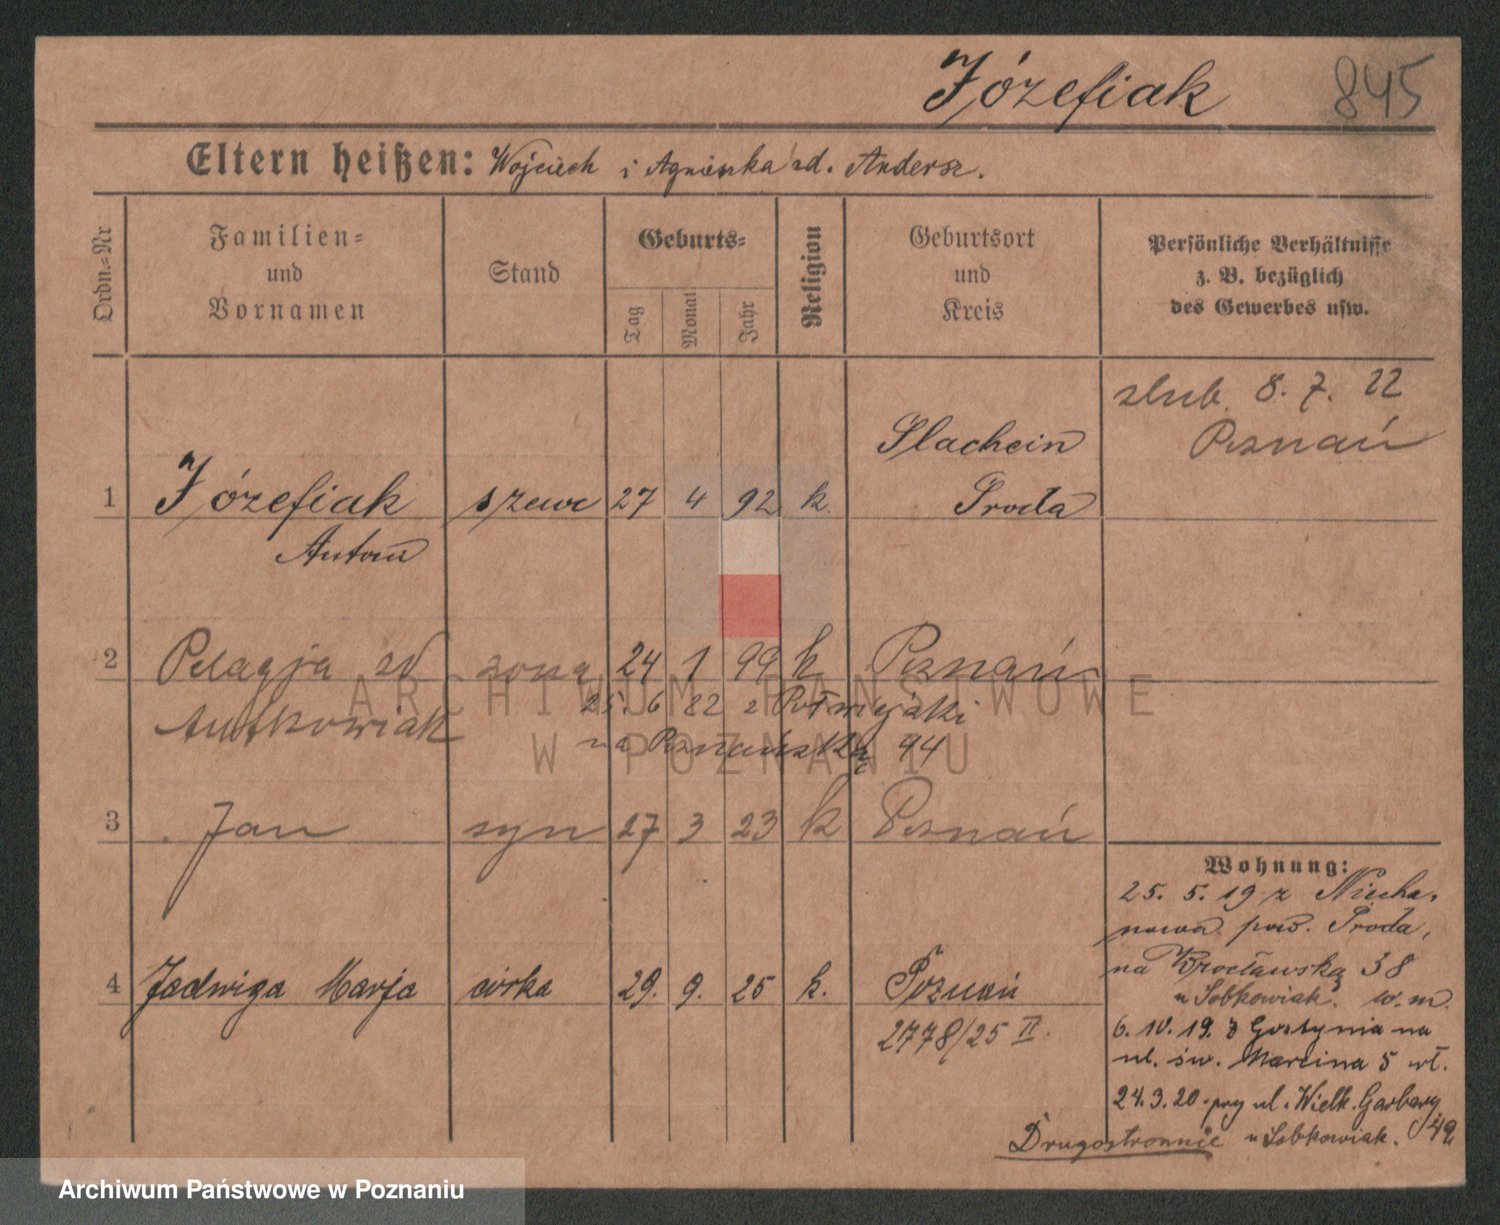 Józefiak 845
Eltern heißen: Wojciech i Agnieszka zd. Andersz.
Ordn.-Nr
Familien-
und
Vornamen
Stand
Geburts-
Tag
Monat
Jahr
Religion
Geburtsort
und
Kreis
Persönliche Verhältnisse
z. B. bezüglich
des Gewerbes usw.
ślub 8. 7. 22
Poznań
Słachcin
1 Józefiak szewc 27 4 92 k. Środa
Antoni
2 Pelagja zd żona 24 1 99 k Poznań
Antkowiak
25. 6 22 z Półwiejski
na Poznańską 44
3 Jan syn 27 3 23 k Poznań
4 Jadwiga Marja córka 29. 9. 25 k. Poznań
2778/25 II.
Wohnung:
25. 5. 19 z Niecha-
nowa pow. Środa,
na Wrocławską 38
u Sobkowiak. w. m.
6. 10. 19. z Gostynia na
ul. św. Marcina 5 wł.
24. 3. 20. przy ul. Wielk. Garbary
49
Drugostronnie u Sobkowiak.
ARCHIWUM PAŃSTWOWE
W POZNANIU
Archiwum Państwowe w Poznaniu